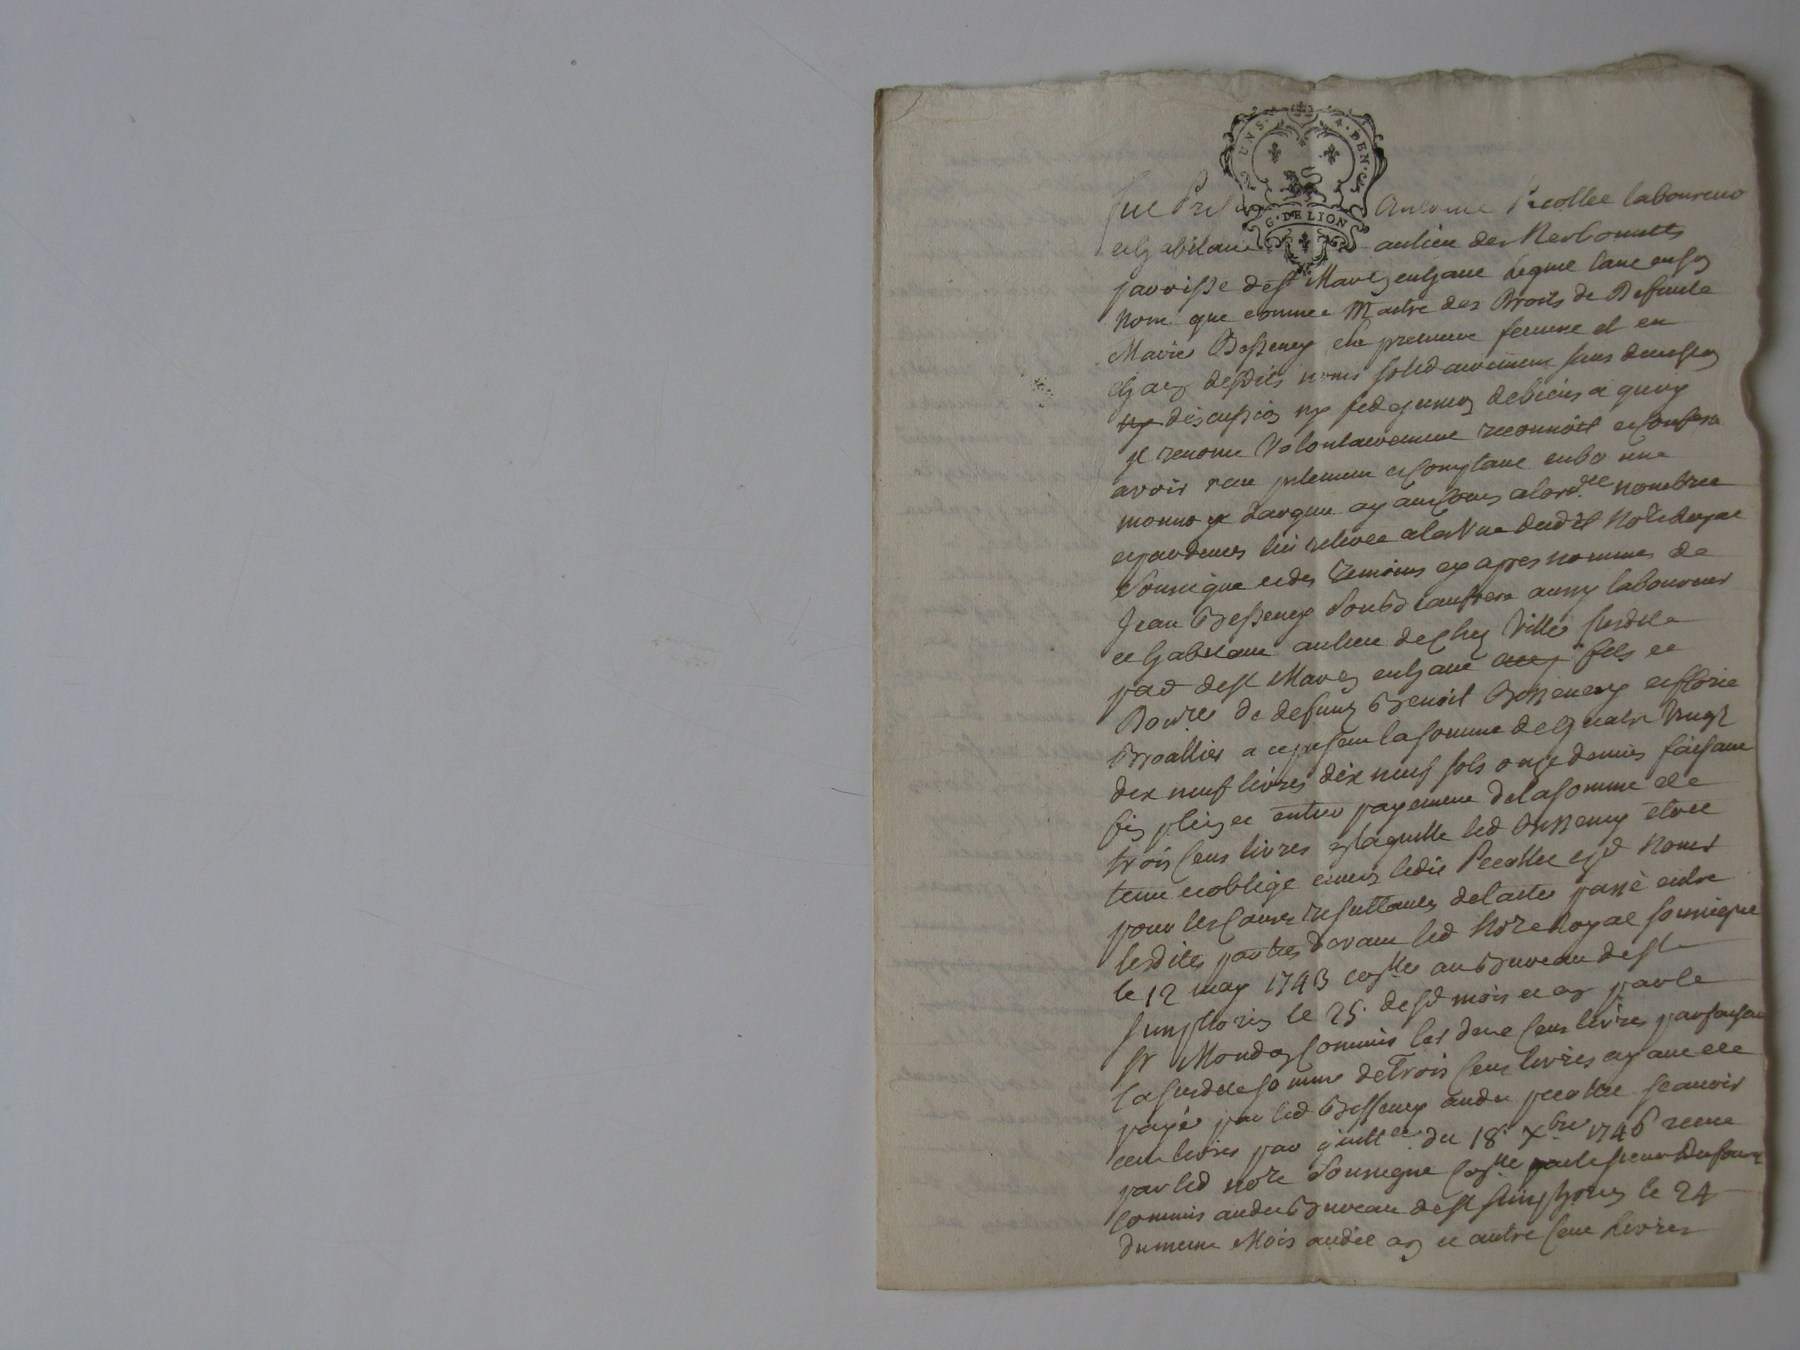 UN S. 4. DEN.
G. DE LION
fut Pres Antoine Pecollee laboureur
et habitant au lieu des Nerbonnets
parroisse de st Marcq en hault leque tant en son
nom que comme Maitre des Droits de Defunte
Marie Besseney sa premiere femme et en
chacq desdits noms solidairement sans division
ny discussion ny fidejussion de biens a quoy
il renonce Volontairement reconnoit et confesse
avoir reçu presentement et comptant en bonne
monnoye d'argent ayant cours a lord.ce nombrée
et par devers lui retirée a la vue dudit No.re Royal
soussigné et des temoins cy apres nommés de
Jean Besseney son beaufrere aussy laboureur
et habitant au lieu de Chez Ville susdite
parr de st Marcq en hault fils et
Donre de defunts Benoit Besseney et florie
Broallier a ce present la somme de quatre vingt
dix neuf livres dix neuf sols onze deniers faisant
fin plein et entier payement de la somme de
trois cens livres a laquelle led Besseney etoit
tenu et obligé envers ledit Pecollee esd noms
pour les causes resultantes de l'acte passé entre
lesdites parties devant led No.re Royal soussigné
le 12 may 1743 con.llé au Bureau de st
simphorien le 25. desd mois et an par le
sr Mondon commis les deux cens livres parfaisant
la susdite somme de Trois cens livres ayant eté
payé par led Besseney audit pecollee scavoir
cent livres par quitt.ce du 18. Xbre 1746 recue
par led no.re soussigné con.llé par le sieur Dufour
commis audit Bureau de st simphorien le 24
du meme Mois audit an et autre cent livres